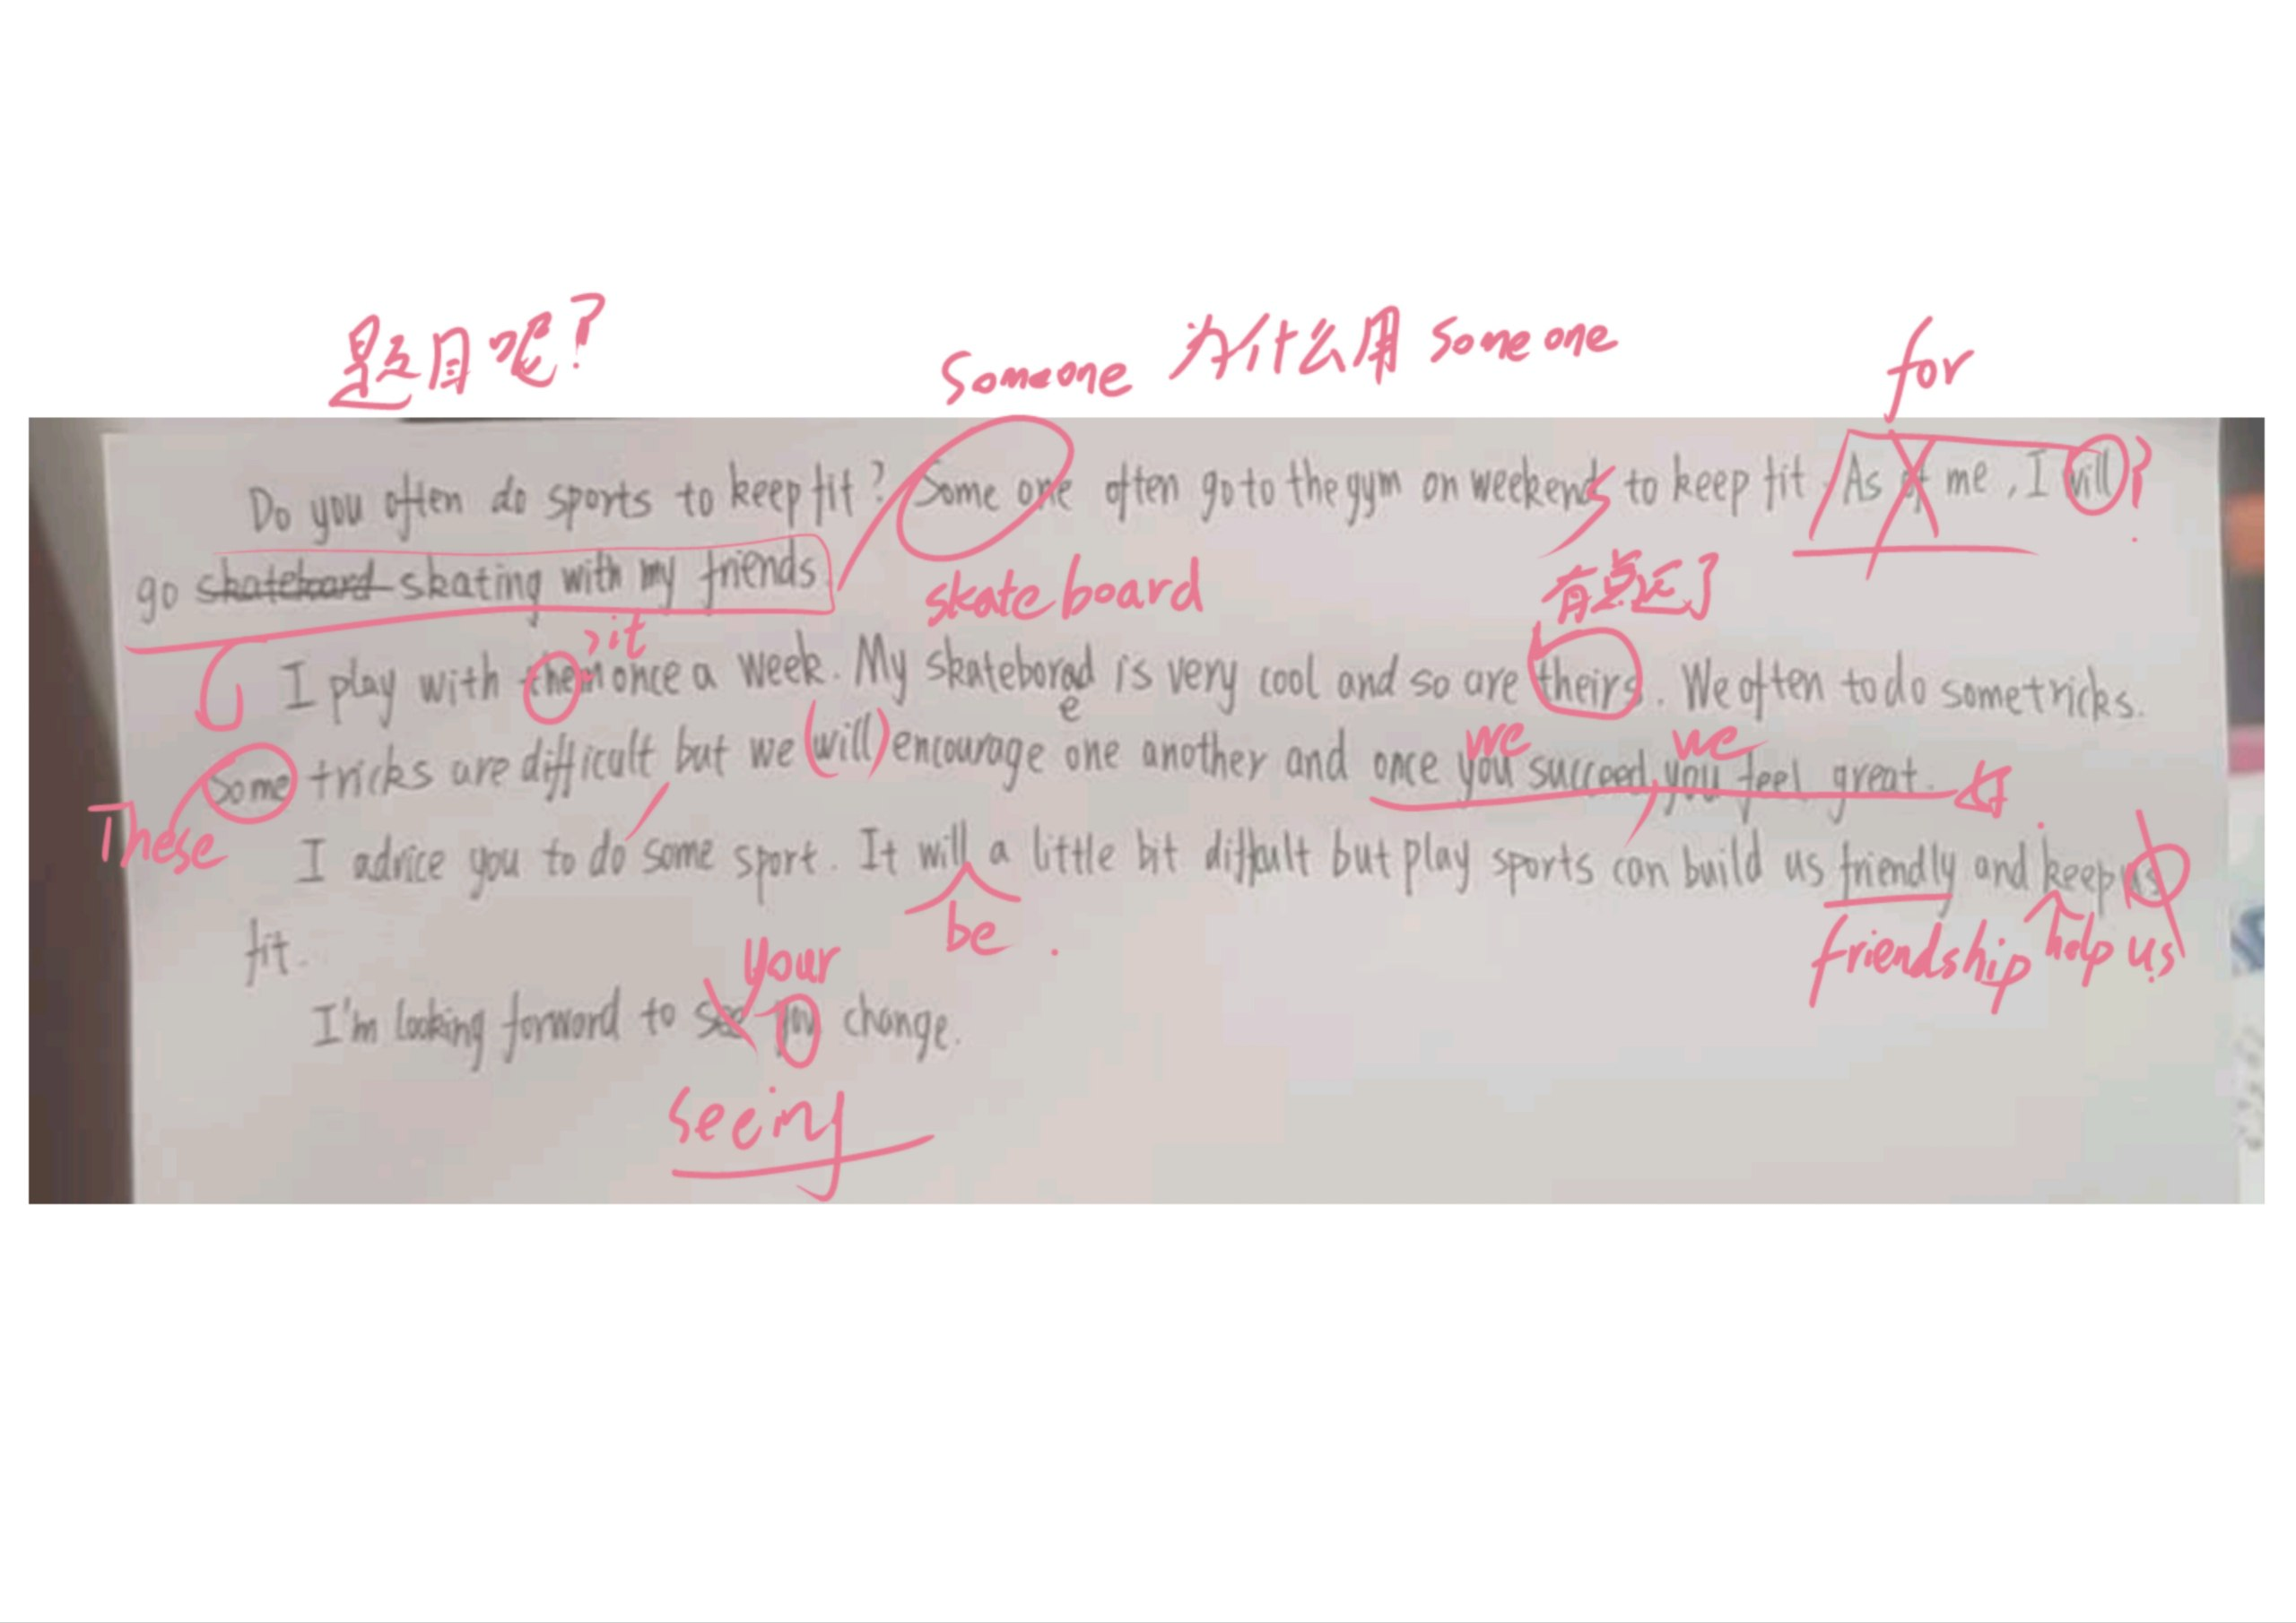 题目呢?
Someone 为什么用 someone
for
Do you often do sports to keep fit? Some one often go to the gym on weekends to keep fit. As of me, I will
?
go skateboard skating with my friends.
skateboard
有点远了
it
I play with them once a week. My skateborad is very cool and so are theirs. We often to do some tricks.
e
we we
Some tricks are difficult but we (will) encourage one another and once you succeed, you feel great.
These
I advice you to do some sport. It will a little bit diffcult but play sports can build us friendly and keep us
be
friendship help us
fit.
your
I'm looking forward to see you change.
seeing